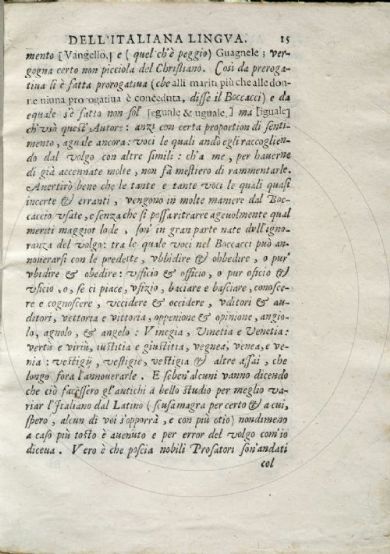 DELL'ITALIANA LINGVA. 15
mento [Vangelio,] e ( quel ch'è peggio) Guagnele ; ver-
gogna certo non picciola del Christiano. Così da preroga-
tiua li è fatta prorogatiua (che alli mariti più che alle don-
ne niuna prorogatiua è conceduta, disse il Boccacci) e da
equale s'è fatto non sol [eguale & uguale,] ma [iguale]
ch'usò quest'Autore: anzi con certa proportion di senti-
mento, aguale ancora: voci le quali andò egli raccoglien-
do dal volgo con altre simili: ch'a me, per hauerne
di già accennate molte, non fà mestiero di rammentarle.
Auertirò bene che le tante e tante voci le quali quasi
incerte & erranti, vengono in molte maniere dal Boc-
caccio vsate, e senza che si possa ritrarre ageuolmente qual
meriti maggior lode, son' in gran parte nate dell'igno-
ranza del volgo: tra le quale voci nel Boccacci può an-
nouerarsi con le predette, vbbidire & obbedire, o pur
vbidire & obedire: vfficio & officio, o pur oficio &
vficio, o, se ci piace, vfizio, baciare e basciare, conosce-
re e cognoscere, vccidere & occidere, vditori & au-
ditori, vettoria e vittoria, oppenione & opinione, angio-
lo, agnolo, & angelo: Vinegia, Vinetia e Venetia:
vertù e virtù, iustitia e giustitia, vegnea, venea, e ve-
nia: vestigij, vestigie, vestigia & altre assai, che
lungo fora l'annouerarle. E seben'alcuni vanno dicendo
che ciò facessero gl'antichi à bello studio per meglio va-
riar l'Italiano dal Latino (scusa magra per certo & a cui,
spero, alcun di voi s'opporrà, e con più otio) nondimeno
a caso più tosto è auenuto e per error del volgo com'io
diceua. Vero è che poscia nobili Prosatori son'andati
col